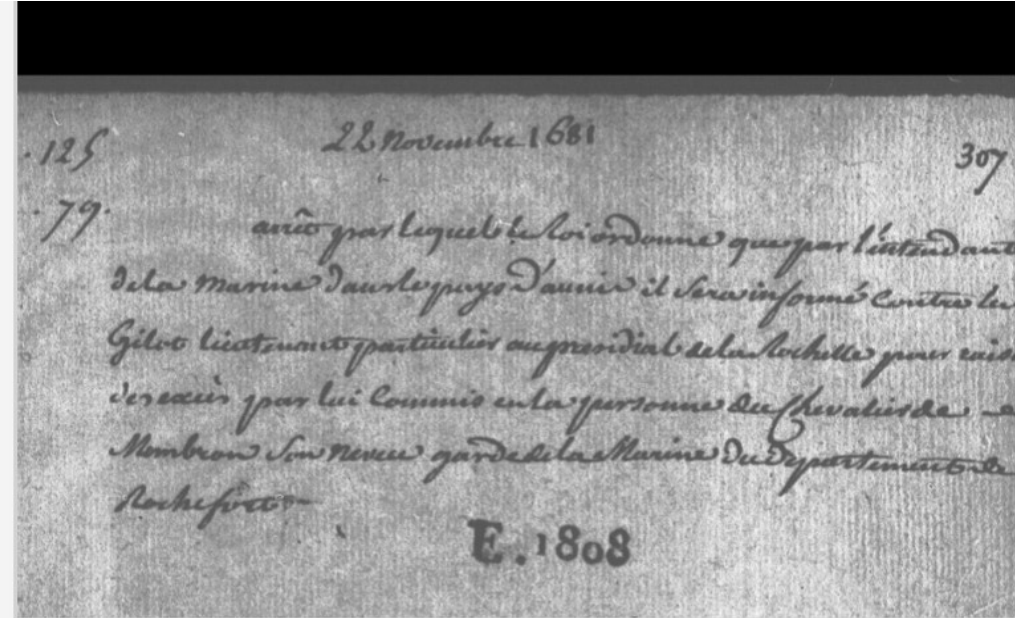 22 Novembre 1681
125
307
79.
arrêt par lequel le Roi ordonne que par l'intendant
de la Marine dans le pays d'aunis il sera informé Contre le
Gilot lieutenant particulier au presidial de la Rochelle pour rais
des excès par lui Commis en la personne du Chevalier de
Mombron Son neveu garde de la Marine du departement de
Rochefort
E. 1808